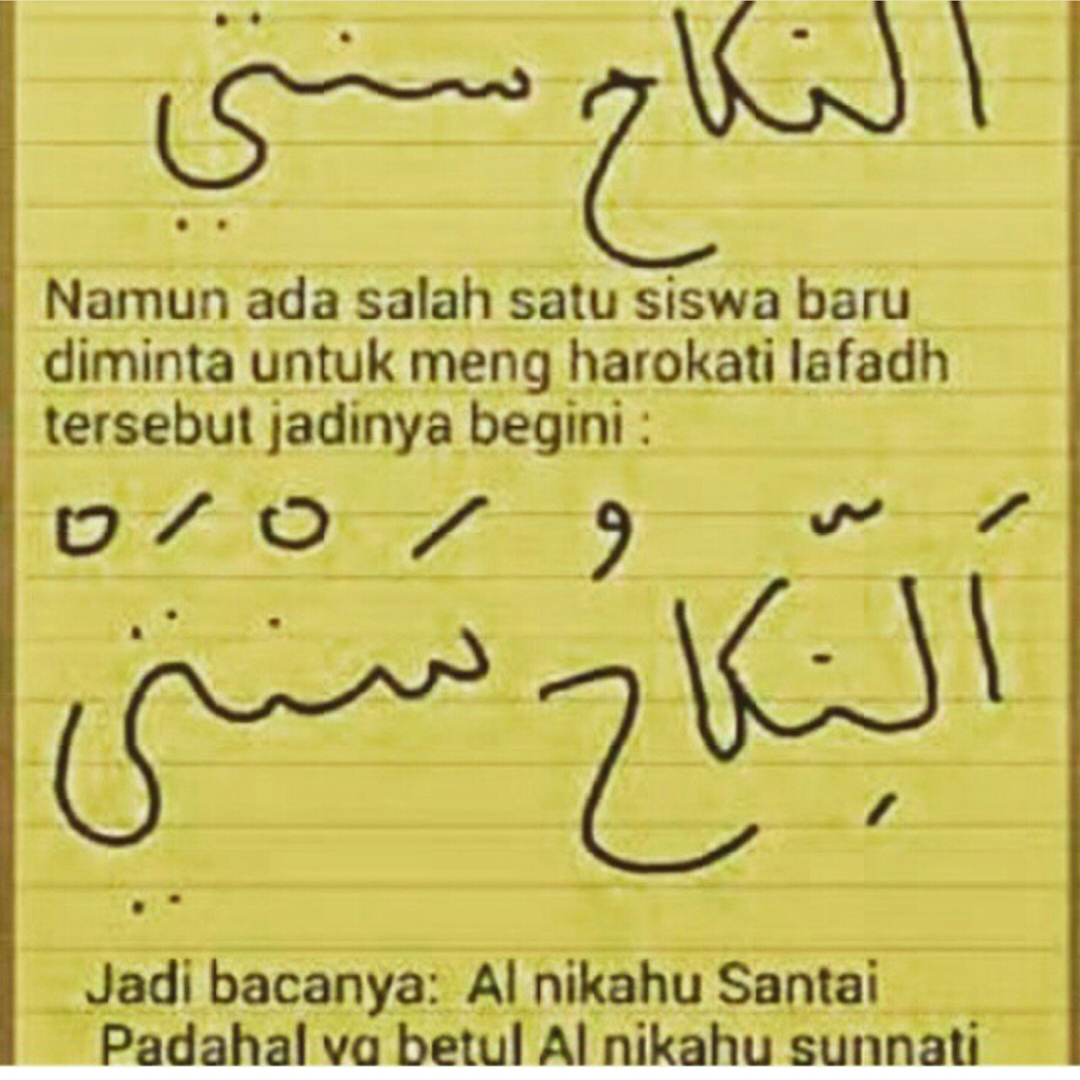 النكاح سنتي
Namun ada salah satu siswa baru
diminta untuk meng harokati lafadh
tersebut jadinya begini :
اَلنِّكَاحُ سَنْتَيْ
Jadi bacanya: Al nikahu Santai
Padahal yg betul Al nikahu sunnati